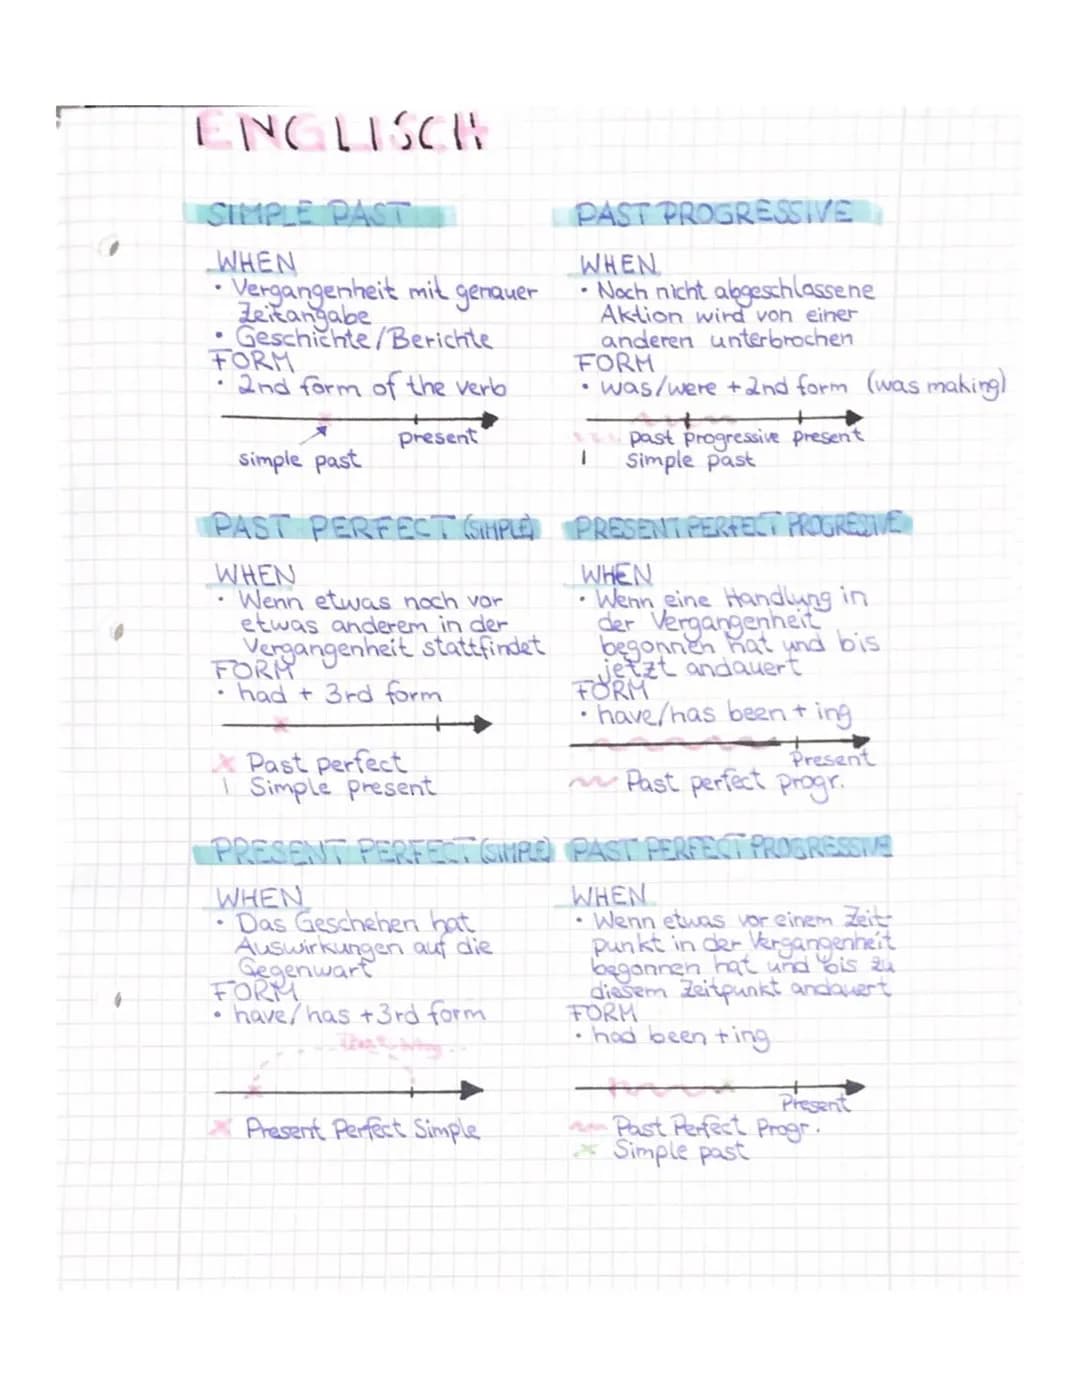 ENGLISCH
SIMPLE PAST
WHEN
• Vergangenheit mit genauer
Zeitangabe
• Geschichte/Berichte
FORM
• 2nd form of the verb
present
simple past
PAST PROGRESSIVE
WHEN
• Noch nicht abgeschlossene
Aktion wird von einer
anderen unterbrochen
FORM
• was/were + 2nd form (was making)
past progressive present
| Simple past
PAST PERFECT (SIMPLE)
WHEN
• Wenn etwas noch vor
etwas anderem in der
Vergangenheit stattfindet
FORM
• had + 3rd form
x Past perfect
| Simple present
PRESENT PERFECT PROGRESSIVE
WHEN
• Wenn eine Handlung in
der Vergangenheit
begonnen hat und bis
jetzt andauert
FORM
• have/has been + ing
Present
Past perfect progr.
PRESENT PERFECT (SIMPLE)
WHEN
• Das Geschehen hat
Auswirkungen auf die
Gegenwart
FORM
• have/has +3rd form
x Present Perfect Simple
PAST PERFECT PROGRESSIVE
WHEN
• Wenn etwas vor einem Zeit-
punkt in der Vergangenheit
begonnen hat und bis zu
diesem Zeitpunkt andauert
FORM
• had been +ing
Present
Past Perfect Progr.
x Simple past